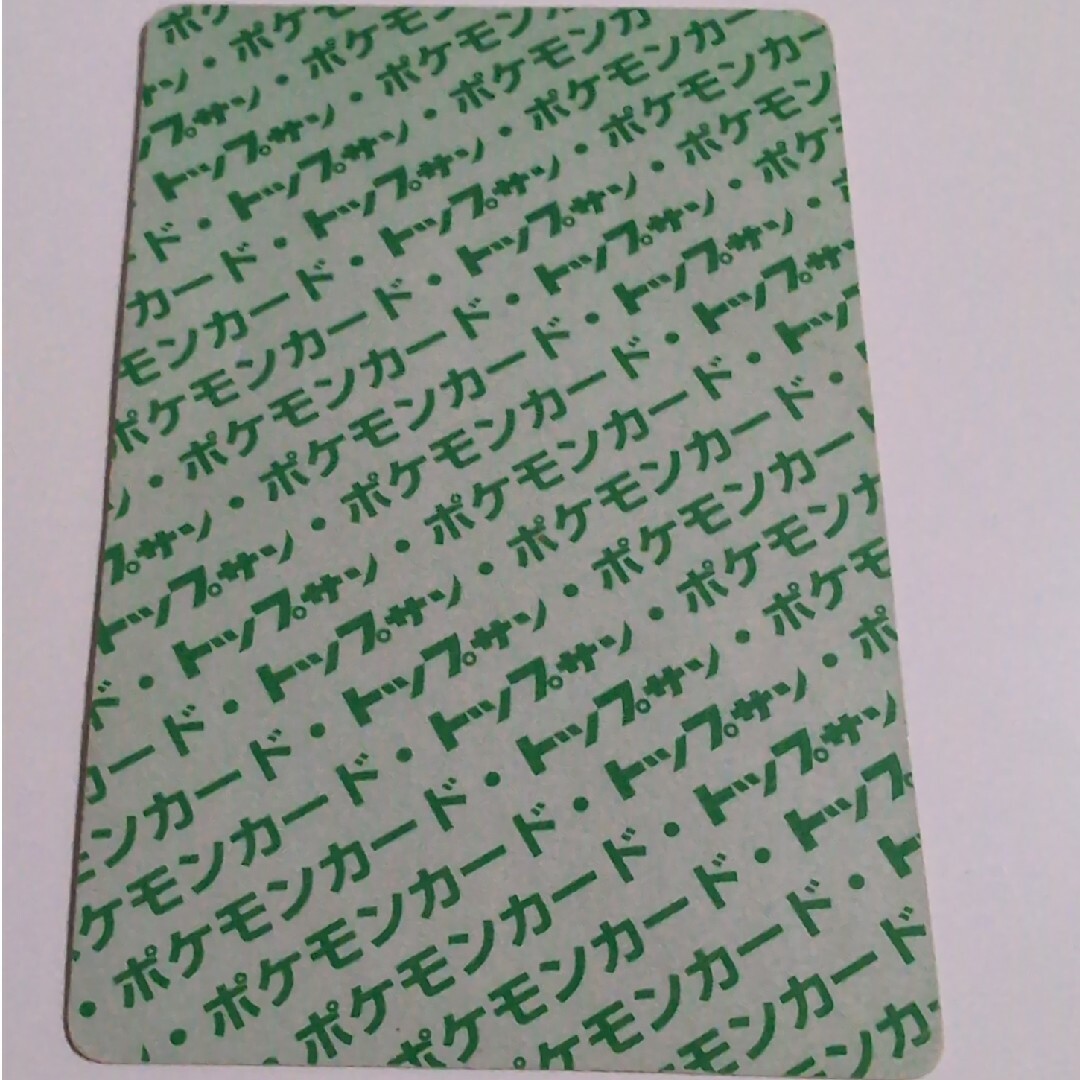 ポケ
サン・ポケ
プサン・ポケモ
トップサン・ポケモン
ド・トップサン・ポケモンカ
カード・トップサン・ポケモンカー
モンカード・トップサン・ポケモンカー
ポケモンカード・トップサン・ポケモン
ン・ポケモンカード・トップサン・ポケ
プサン・ポケモンカード・トップサン・
トップサン・ポケモンカード・トップサ
ド・トップサン・ポケモンカード・トッ
カード・トップサン・ポケモンカード・
ンカード・トップサン・ポケモンカード
ケモンカード・トップサン・ポケモンカ
・ポケモンカード・トップサン・ポケモ
・ポケモンカード・トップサン・ポ
・ポケモンカード・トップサン
ポケモンカード・トップ
ケモンカード・ト
モンカード
ンカ